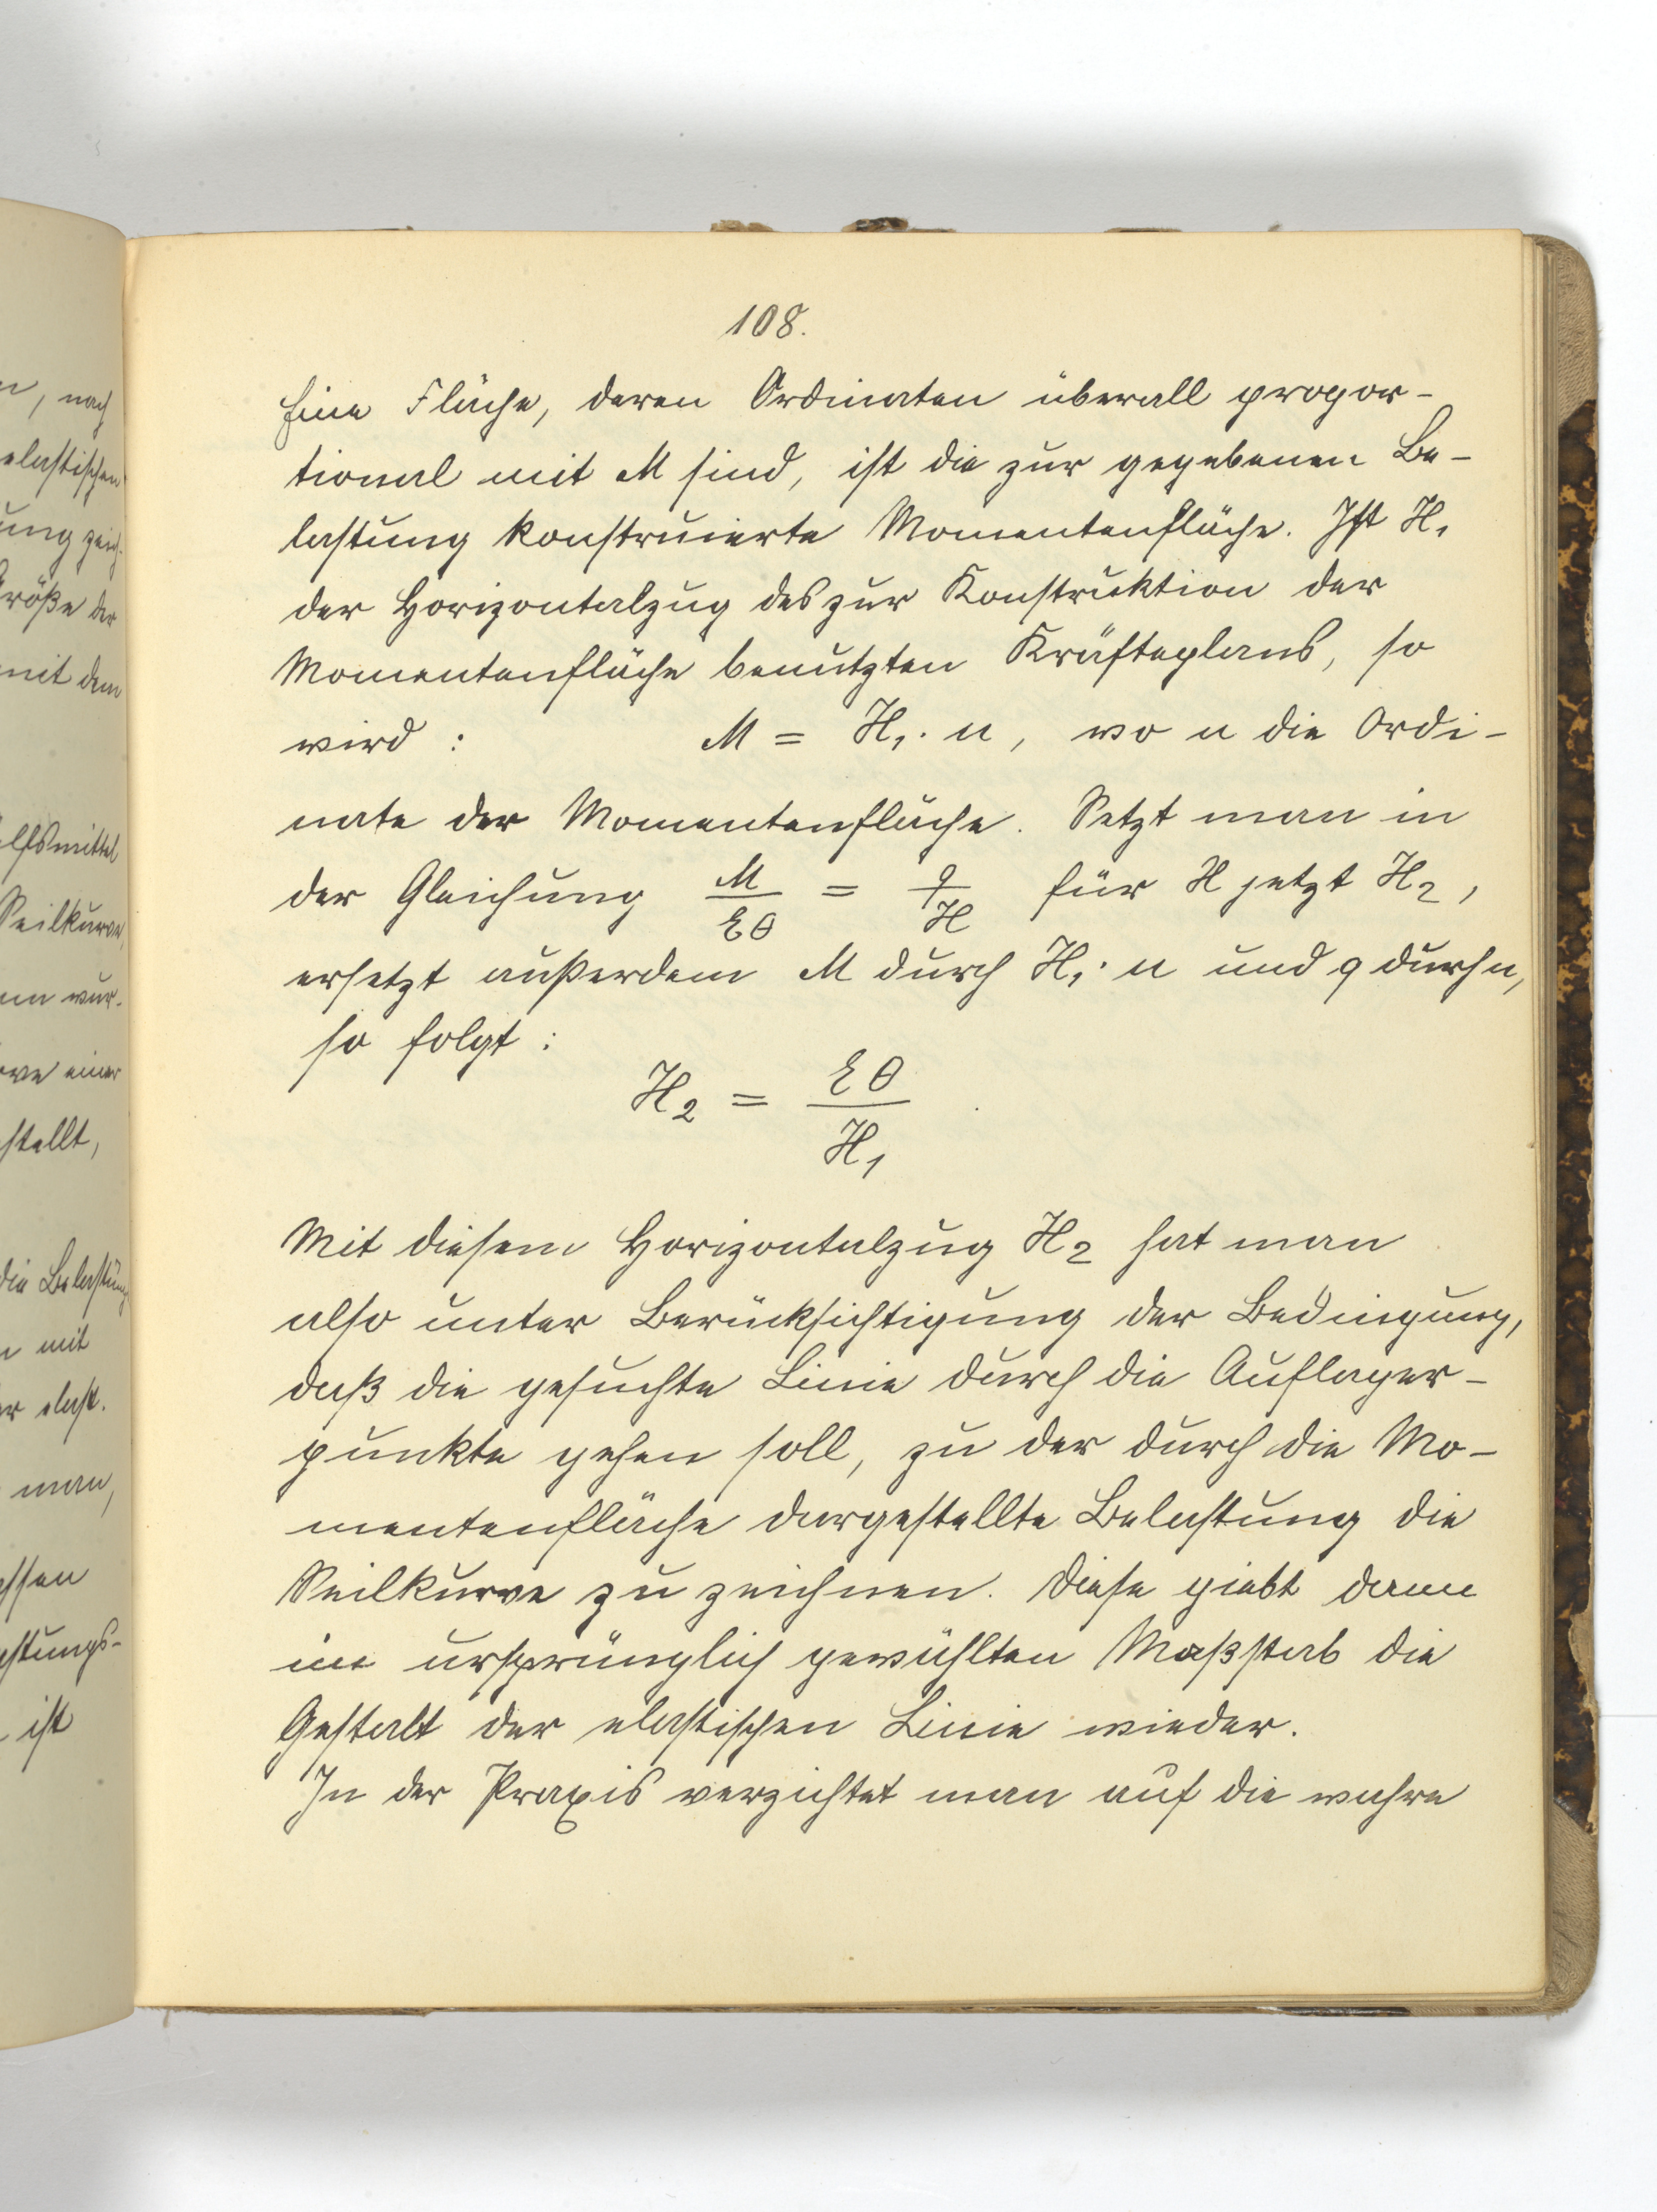 108.
Eine Fläche, deren Ordinaten überall propor-
tional mit M sind, ist die zur gegebenen Be-
lastung konstruierte Momentenfläche. Ist H₁
der Horizontalzug des zur Konstruktion der
Momentenfläche benutzten Kräfteplans, so
wird : M = H₁ · n, wo n die Ordi-
nate der Momentenfläche. Setzt man in
der Gleichung M/εθ = q/H für H jetzt H₂,
ersetzt außerdem M durch H₁ · n und q durch n,
so folgt :
H₂ = εθ/H₁
Mit diesem Horizontalzug H₂ hat man
also unter Berücksichtigung der Bedingung,
daß die gesuchte Linie durch die Auflager-
punkte gehen soll, zu der durch die Mo-
mentenfläche dargestellte Belastung die
Seilkurve zu zeichnen. Diese giebt dann
im ursprünglich gewählten Maßstab die
Gestalt der elastischen Linie wieder.
In der Praxis verzichtet man auf die wahre
, nach
elastischen
röße der
mit dem
lfsmittel
Seilkurve,
wur-
einer
stellt,
die Belastung
mit
elast.
man,
ist